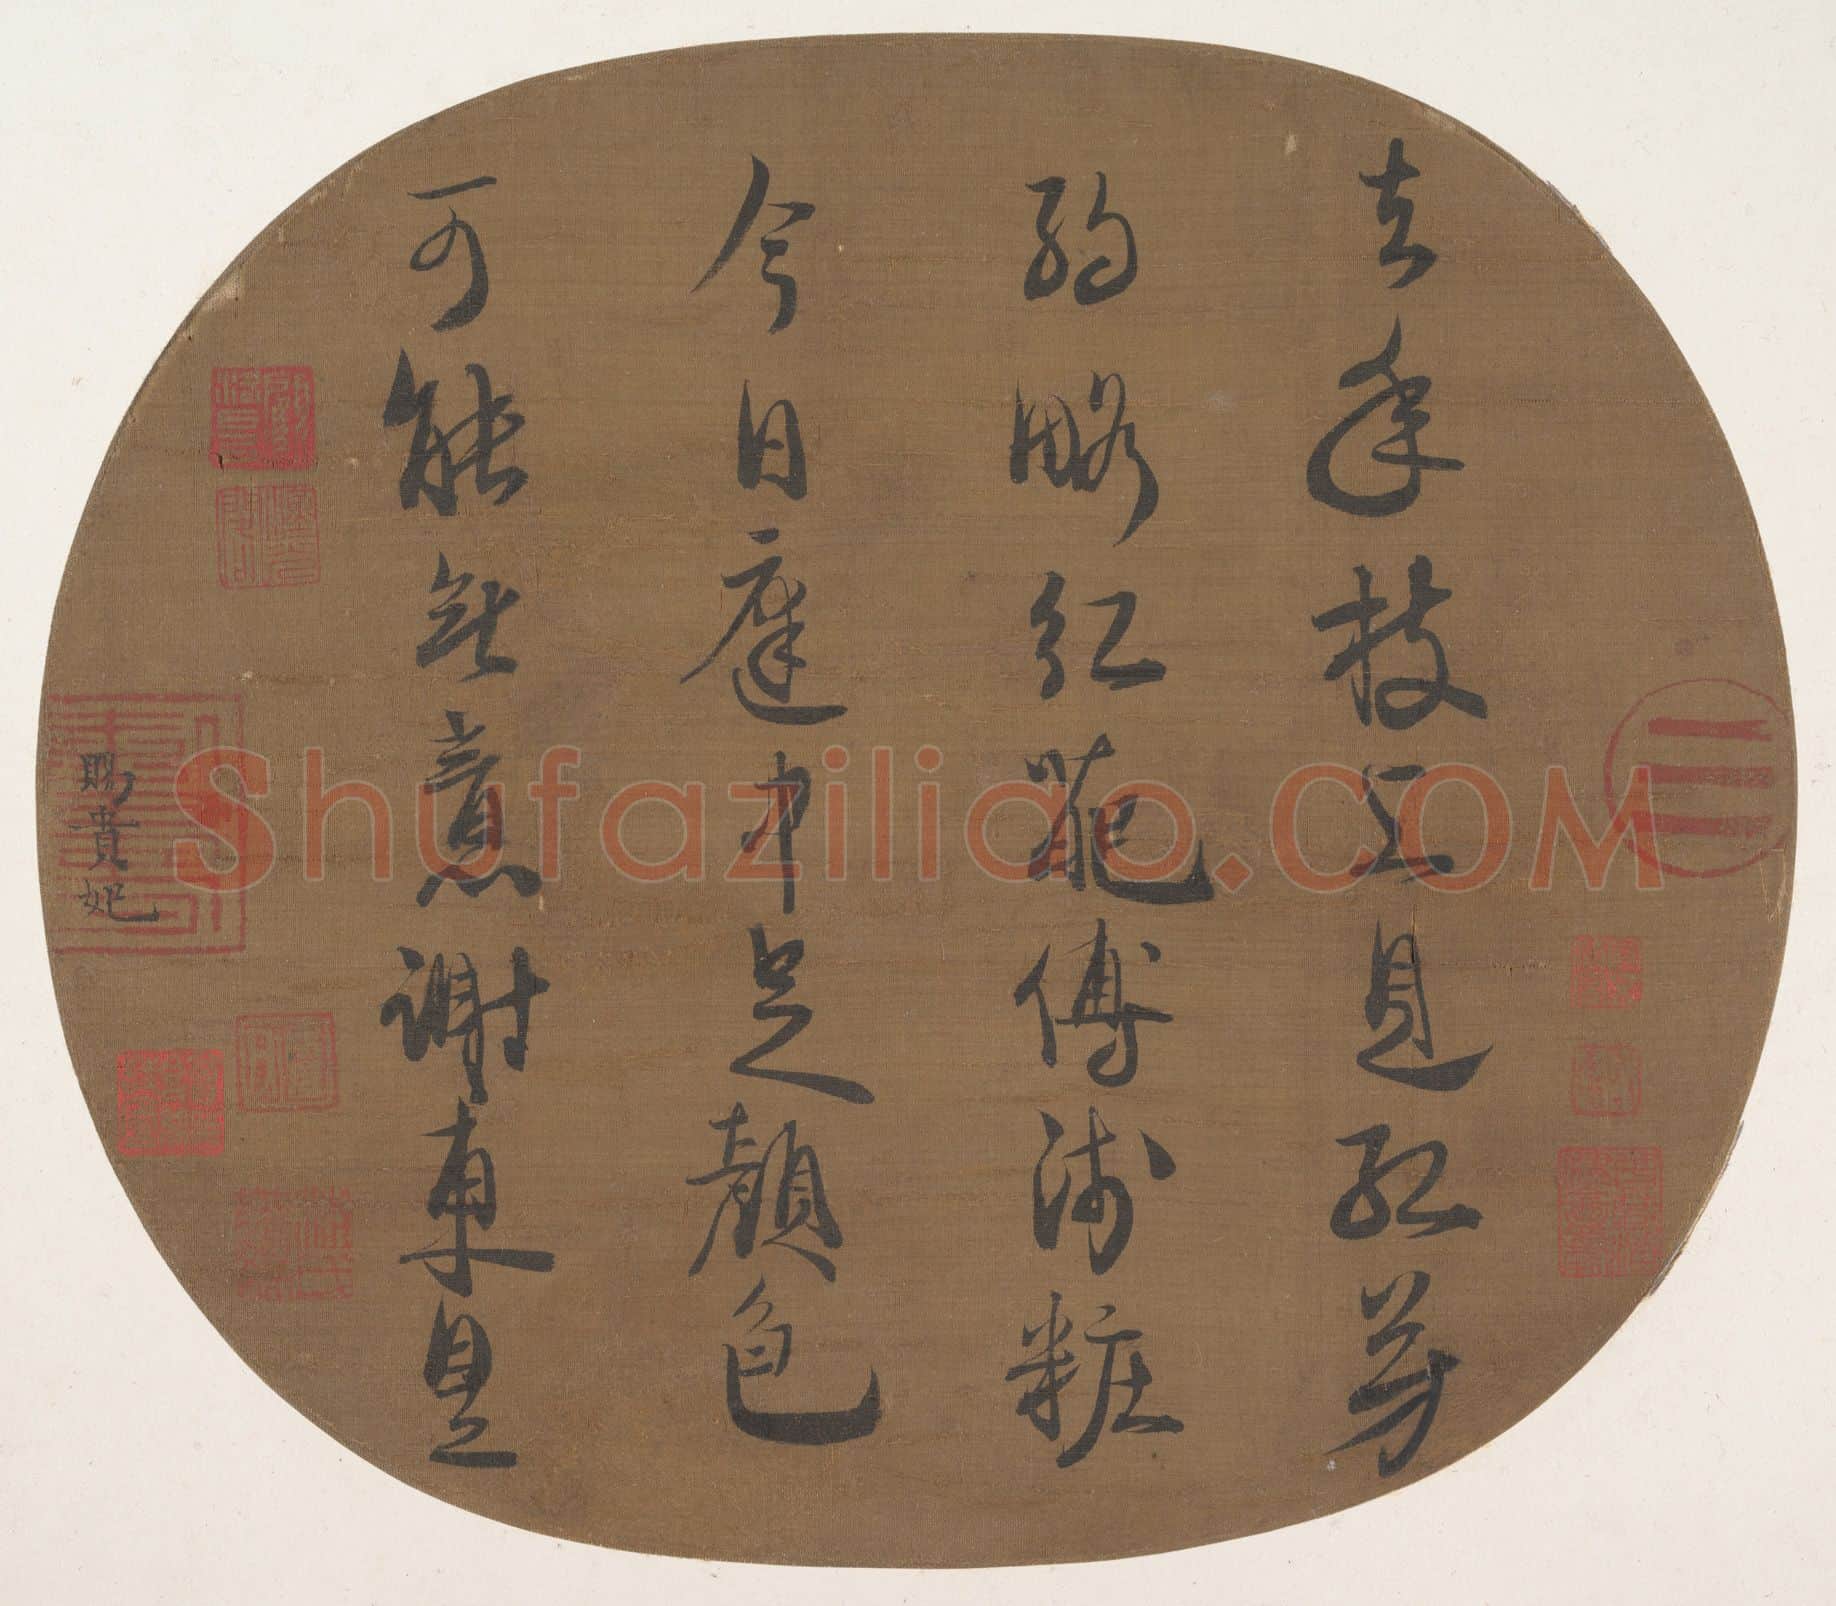 去年枝上見紅芳
約略紅葩傅淺粧
今日庭中足顏色
可能無意謝東皇
賜貴妃
Shufaziliao.COM